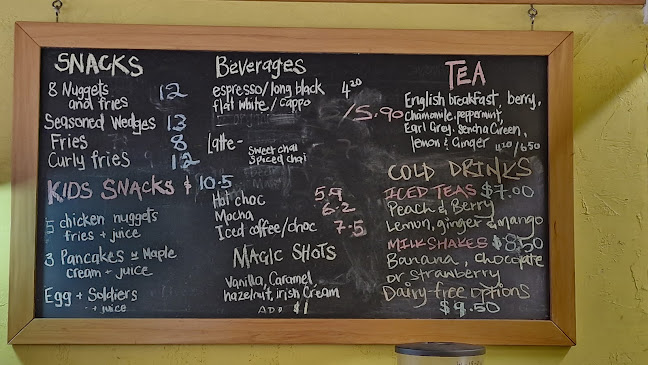 SNACKS
8 Nuggets and fries 12
Seasoned Wedges 13
Fries 8
Curly fries 12
KIDS SNACKS $ 10.5
5 chicken nuggets
fries + juice
3 Pancakes w Maple
cream + juice
Egg + Soldiers
+ juice
Beverages
espresso/long black 4.20
flat white / cappo /5.90
Latte - sweet chai
Spiced chai
Hot choc 5.9
Mocha 6.2
Iced coffee/choc 7.5
MAGIC SHOTS
Vanilla, Caramel,
hazelnut, irish Cream
ADD $1
TEA
English breakfast, berry,
Chamomile, peppermint,
Earl Grey, Sencha Green,
lemon & Ginger 4.20/6.50
COLD DRINKS
ICED TEAS $7.00
Peach & Berry
Lemon, ginger & mango
MILKSHAKES $8.50
Banana, chocolate
or strawberry
Dairy-free options
$9.50